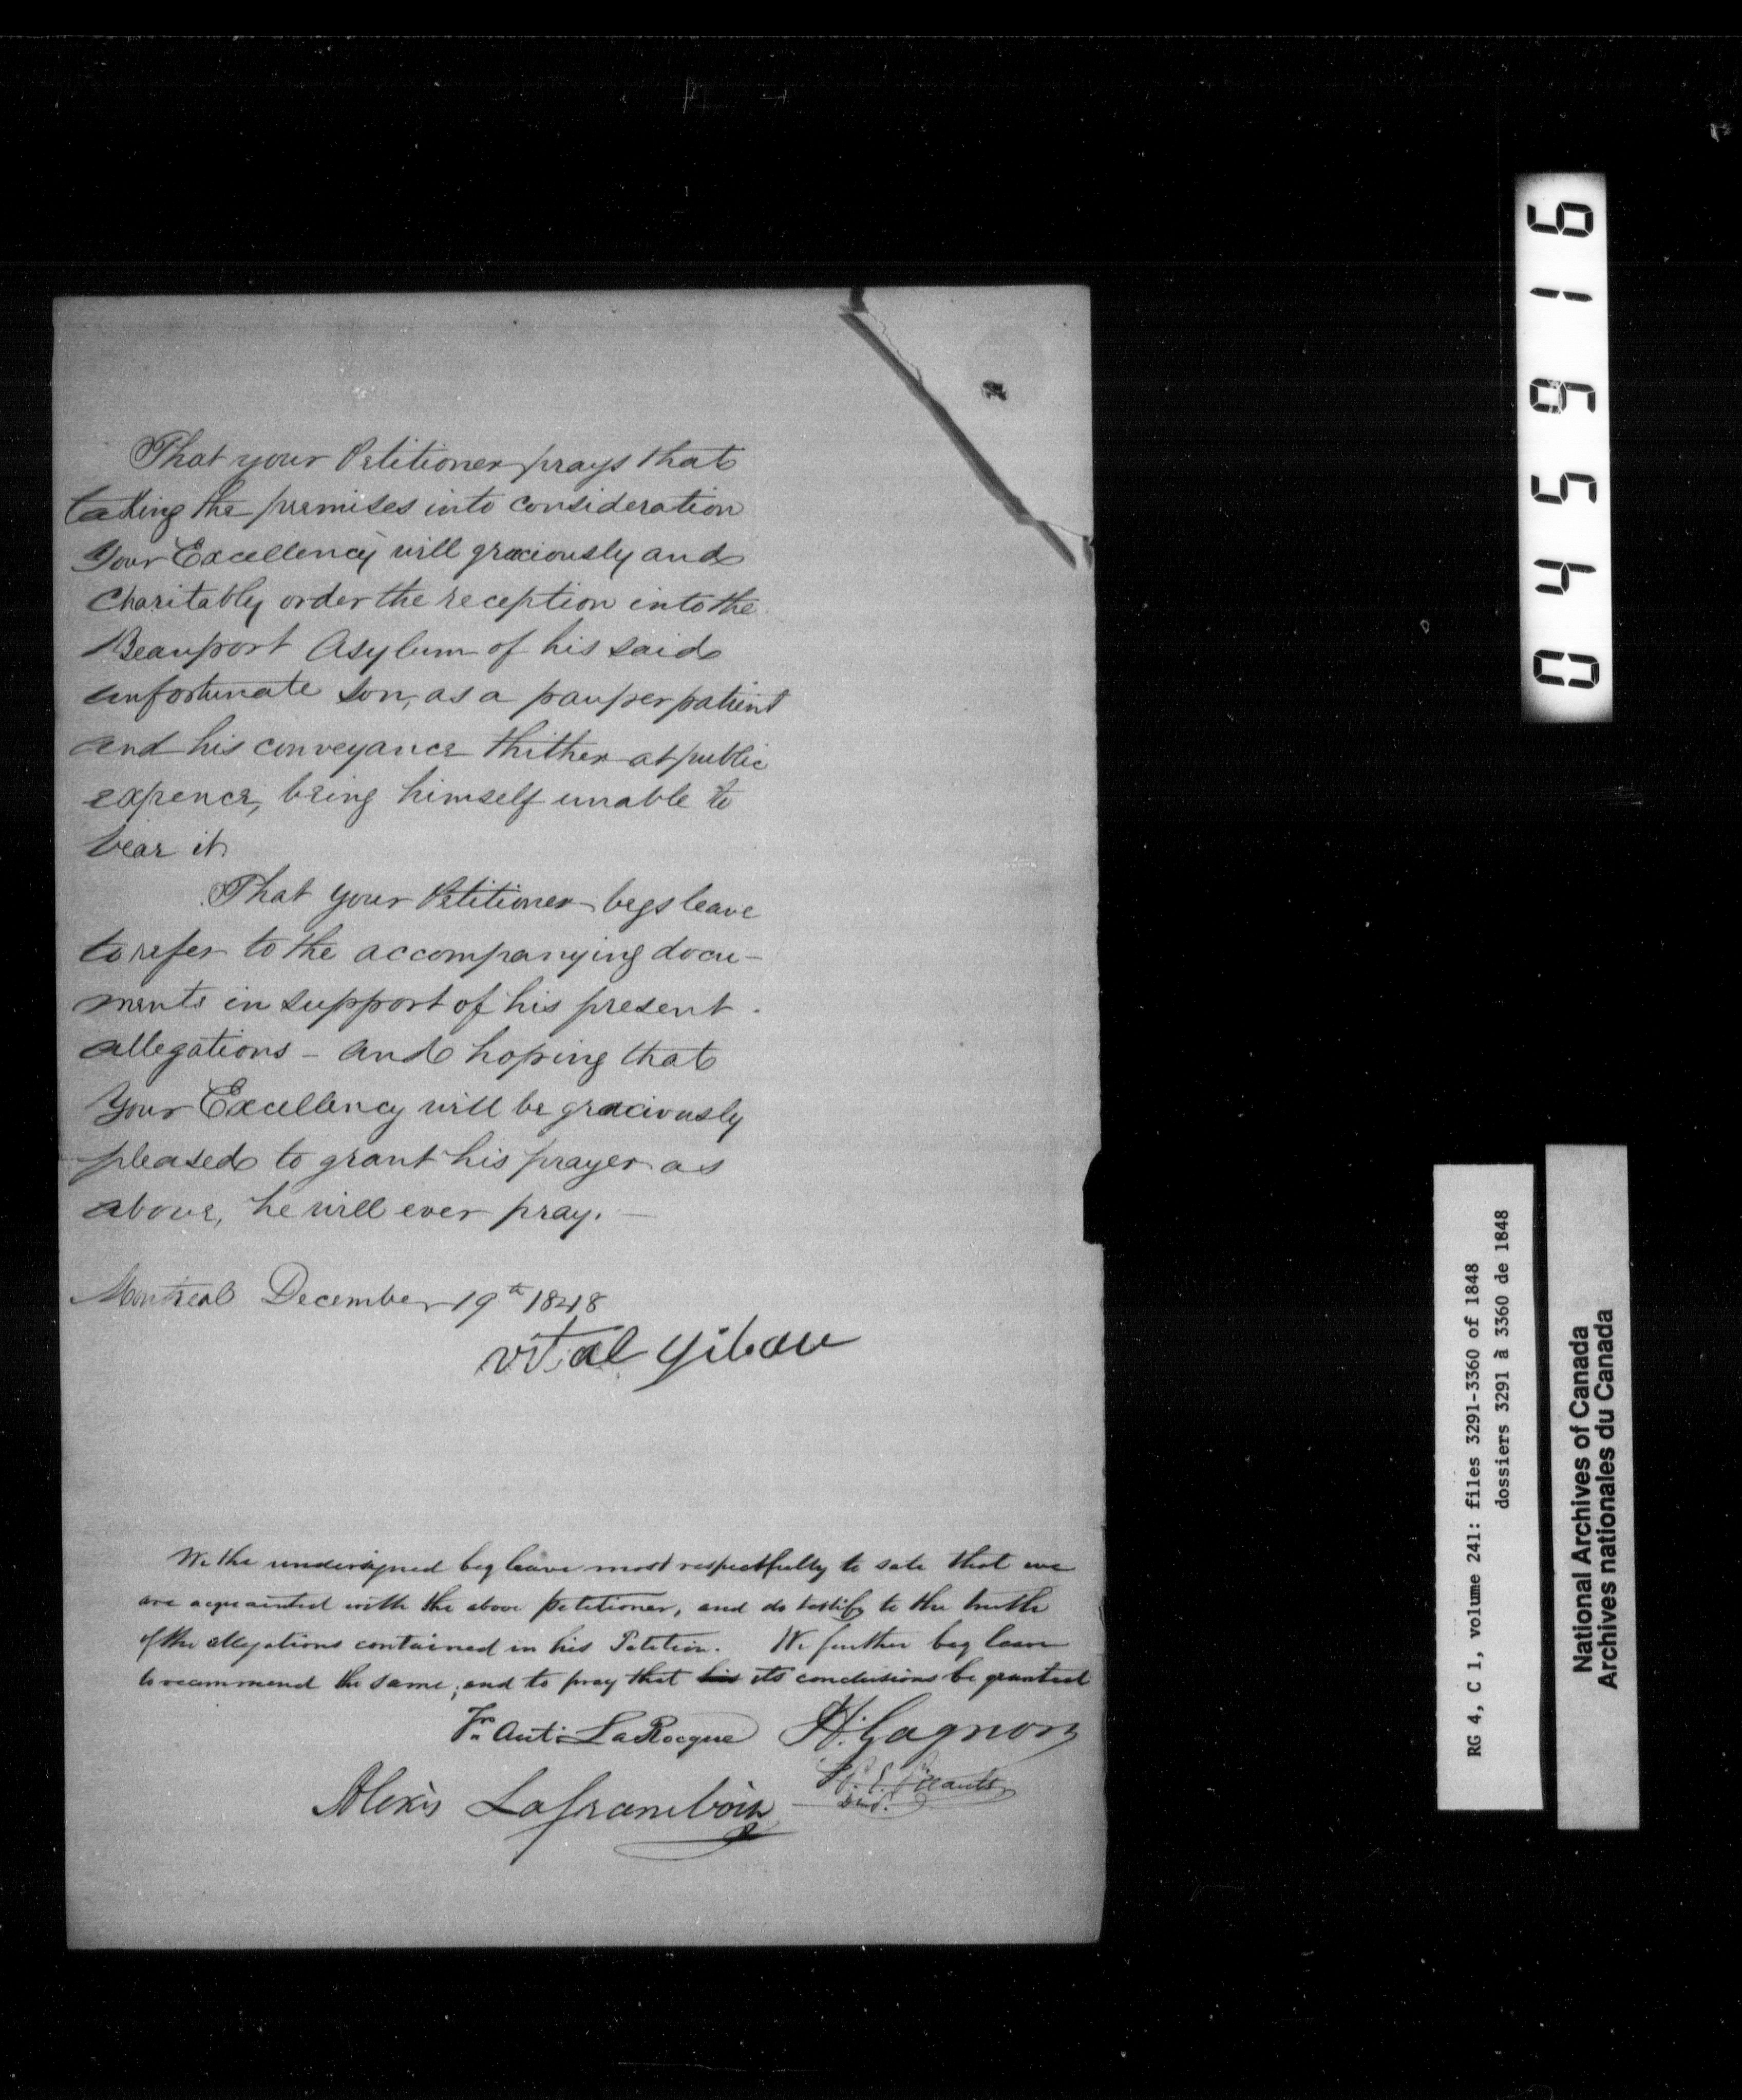 That your Petitioner prays that
taking the premises into consideration
Your Excellency will graciously and
Charitably order the reception into the
Beauport Asylum of his said
unfortunate son, as a pauper patient
and his conveyance thither at public
expence, being himself unable to
bear it.
That your Petitioner begs leave
to refer to the accompanying docu-
ments in support of his present
allegations - and hoping that
Your Excellency will be graciously
pleased to grant his prayer as
above, he will ever pray. —
Montreal December 19th 1848
vital gibau
We the undersigned beg leave most respectfully to sate that we
are acquainted with the above petitioner, and do testify to the truth
of the allegations contained in his Petition. We further beg leave
to recommend the same; and to pray that his its conclusions be granted
Frs. Ant: LaRocque H. Gagnon
Alexis Laframboise
045916
RG 4, C 1, volume 241: files 3291-3360 of 1848
dossiers 3291 à 3360 de 1848
National Archives of Canada
Archives nationales du Canada